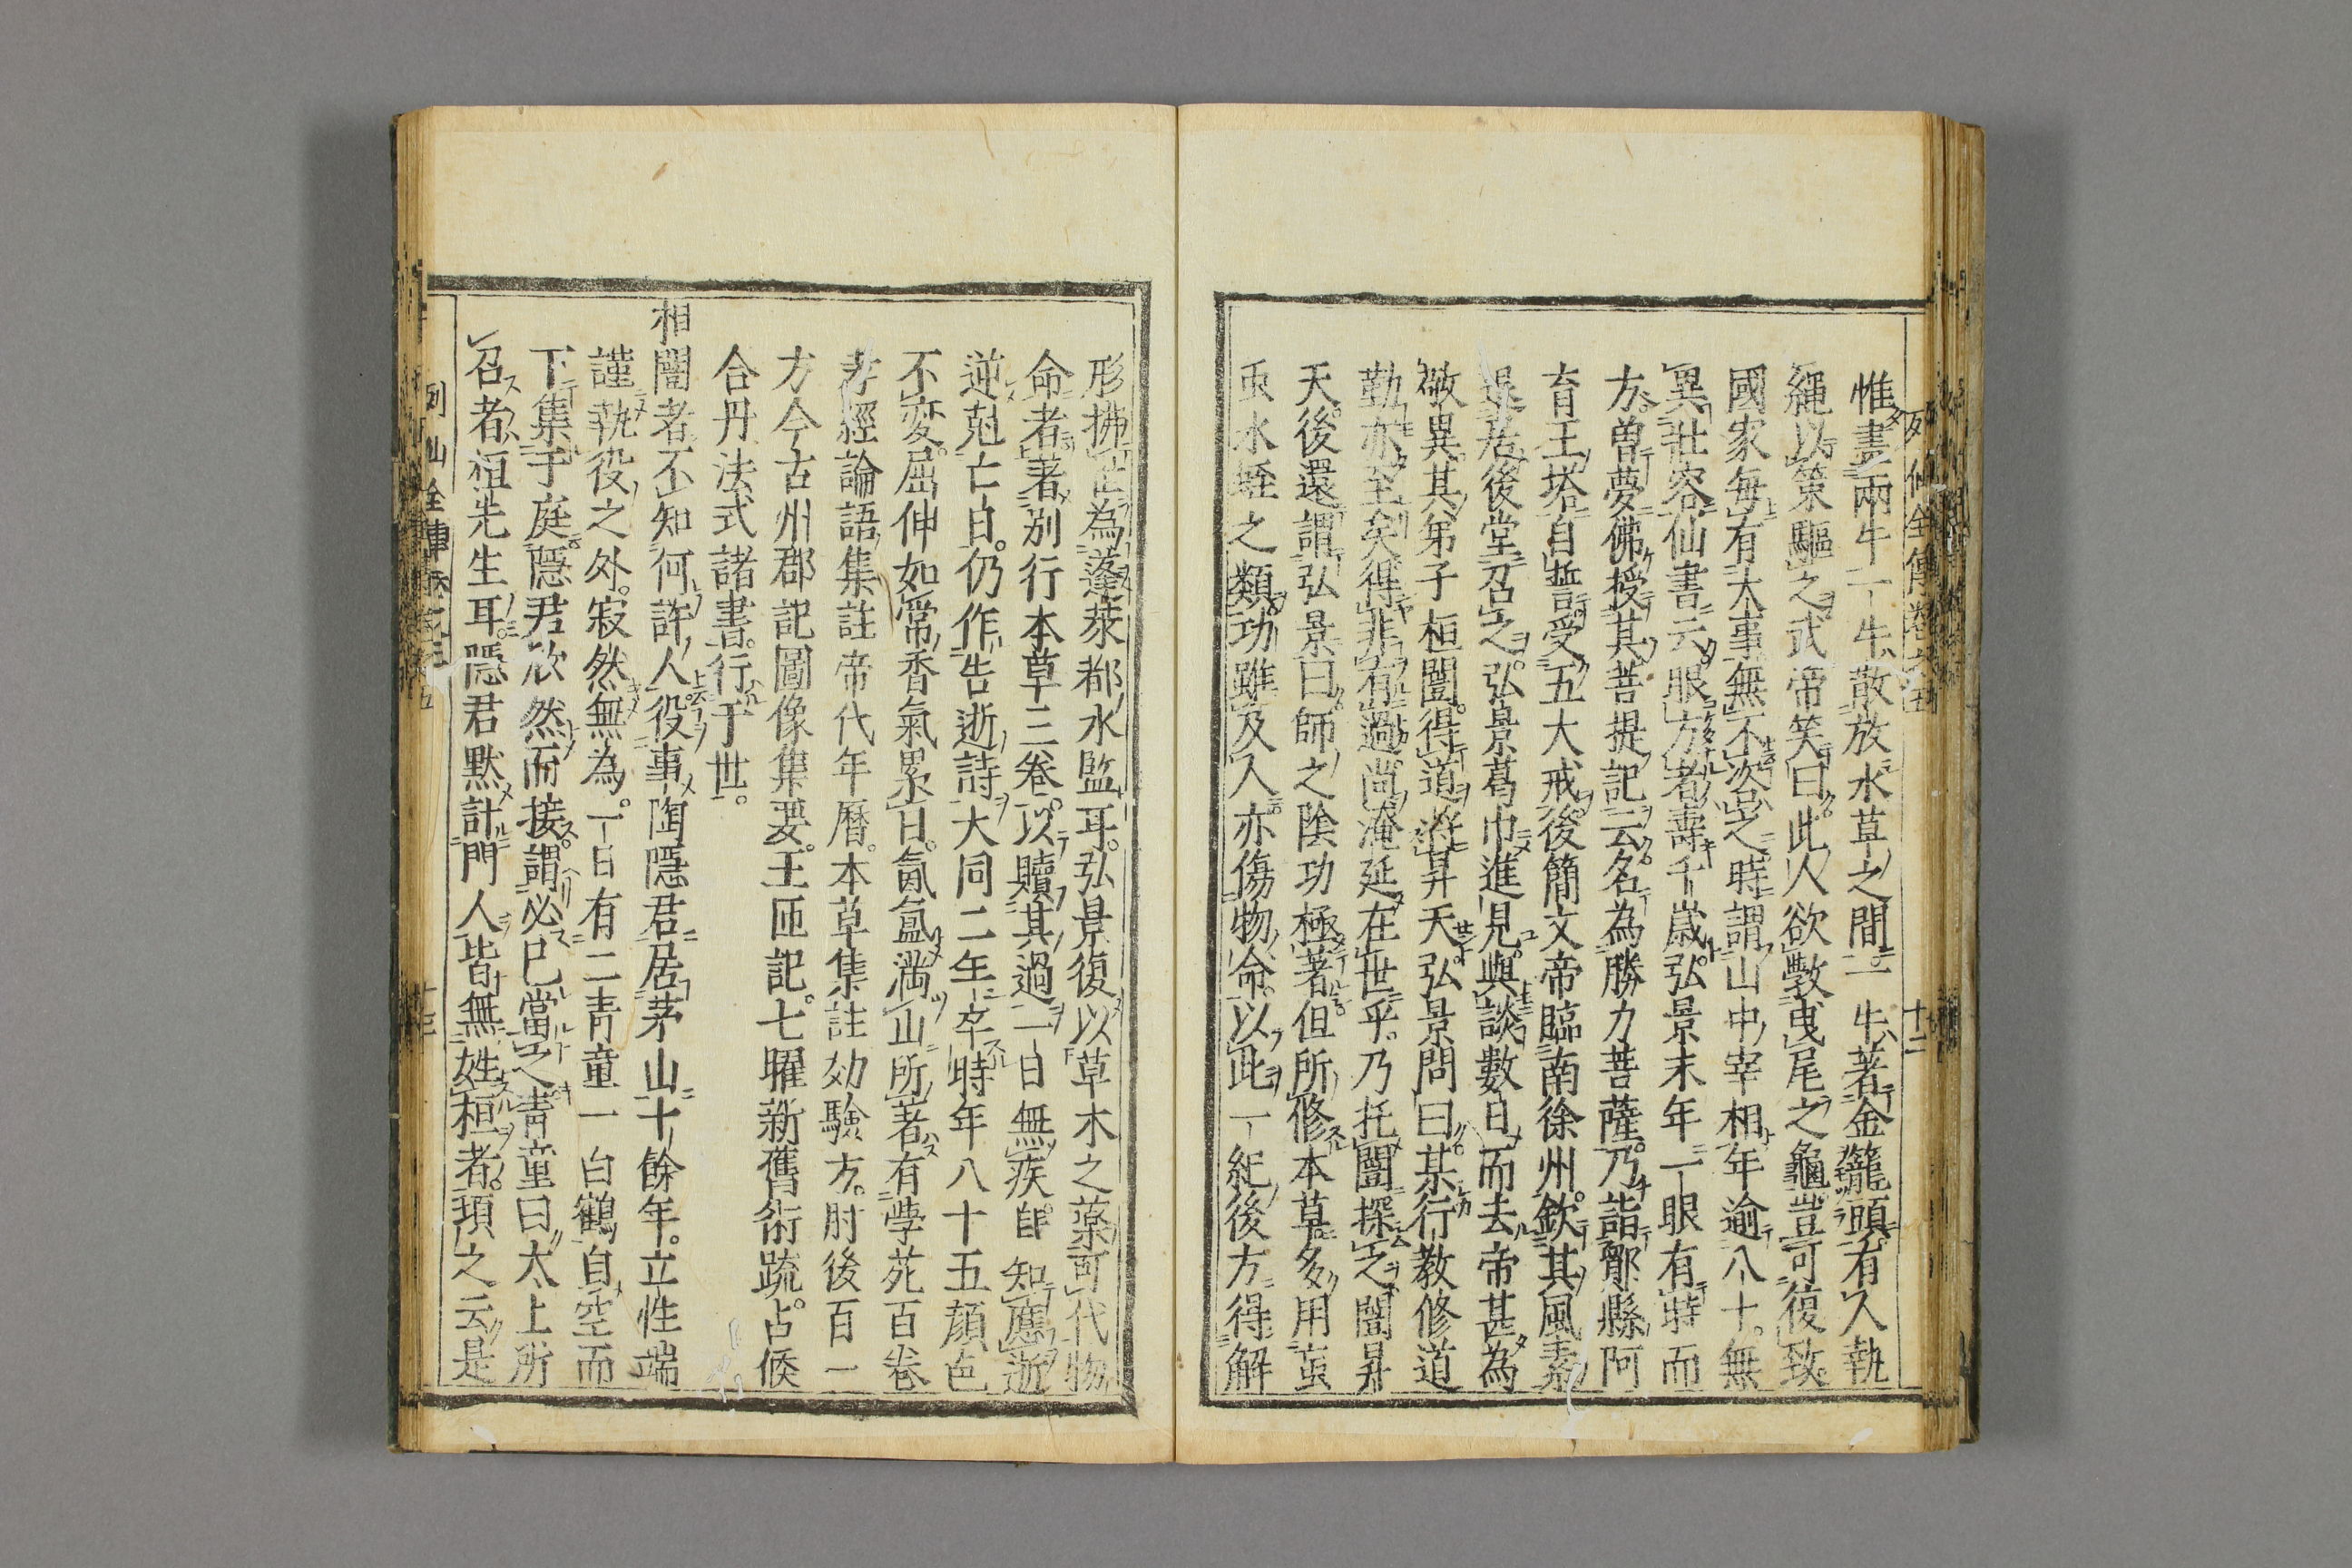 惟畫兩牛一牛散放水草之間一牛著金籠頭有人執
繩以策驅之武帝笑曰此人欲斆曳尾之龜豈可復致
國家每有大事無不咨之時謂山中宰相年逾八十無
異壯容仙書云眼方者壽千歲弘景末年一眼有時而
方曽夢佛授其菩提記云名為勝力菩薩乃詣鄮縣阿
育王塔自誓受五大戒後簡文帝臨南徐州欽其風素
退居後堂召之弘景葛巾進見與談數日而去帝甚為
敬異其弟子桓闓得道將昇天弘景問曰某行教修道
勤亦至矣得非有過尚淹延在世乎乃托闓探之闓昇
天後還謂弘景曰師之陰功極著但所修本草多用䖝
䖝水蛭之類功雖及人亦傷物命以此一紀後方得解
形拂世為蓬萊都水監耳弘景復以草木之藥可代物
命者著別行本草三卷以贖其過一日無疾自知應逝
逆剋亡日仍作告逝詩大同二年卒時年八十五顔色
不変屈伸如常香氣累日氤氳滿山所著有學苑百卷
孝經論語集註帝代年曆本草集註効驗方肘後百一
方今古州郡記圖像集要玉匝記七曜新舊術疏占候
合丹法式諸書行于世
相闓者不知何許人役事陶隱君居茅山十餘年立性端
謹執役之外寂然無為一日有二青童一白鶴自空而
下集于庭隱君欣然而接謂必巳當之青童曰太上所
召者桓先生耳隱君默計門人皆無姓桓者頊之云是
列仙全傳卷之五
十二
列仙全傳卷之五
十三